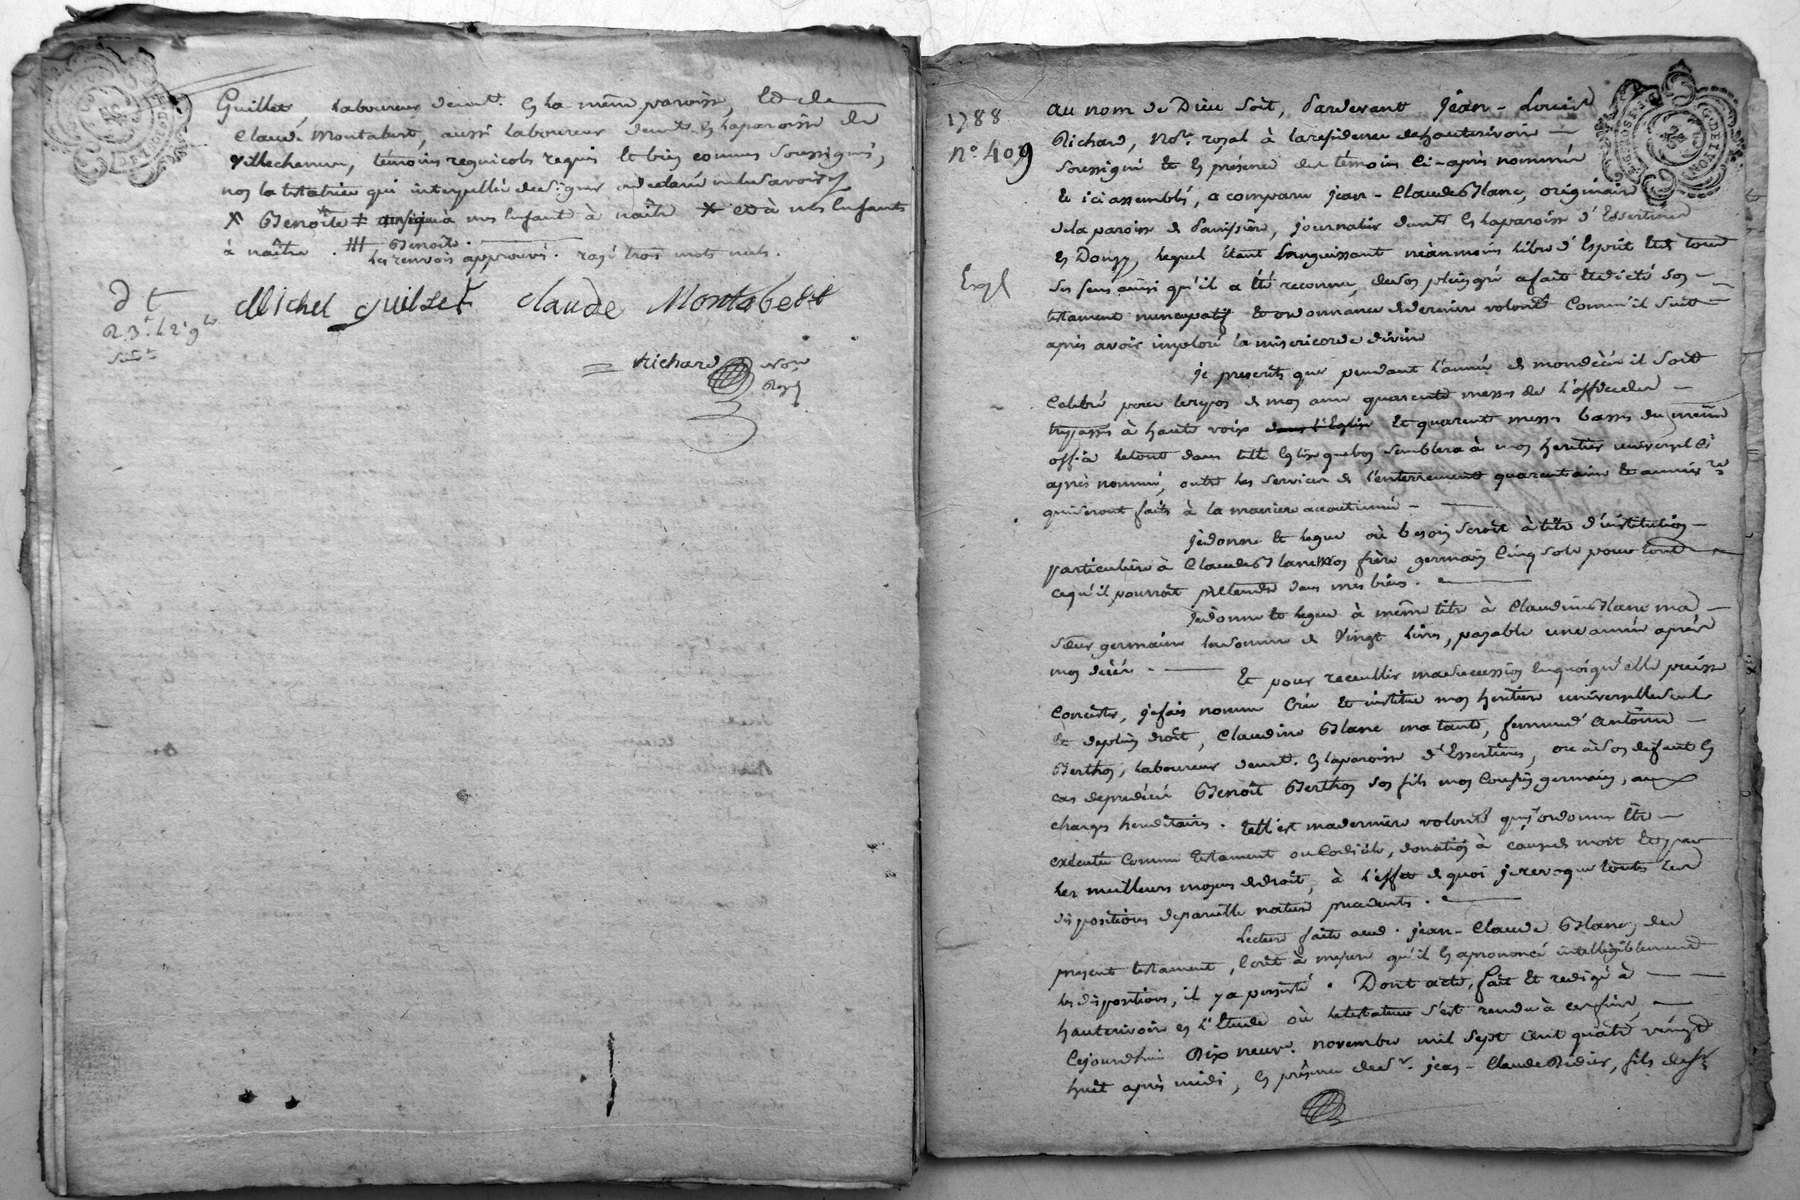 Guillet laboureur demt. en la même paroisse, et de
Claude Montabert, aussi laboureur demt. en la paroisse de
Villechenève, témoins regnicols requis et bien connus soussignés,
non la testatrice qui interpellée de signer a declaré ne le savoir
X Benoîte à mes enfants à naître X et à mes enfants
à naître. Benoîte.
les renvois approuvés. rayé trois mots nuls.
Michel Guillet Claude Montabert
Richard Nore
Royl
1788
N° 409
Expl
au nom de Dieu soit, Pardevant Jean-Louis
Richard, Nore. royal à la residence de hauterivoire
soussigné et en présence des témoins ci-après nommés
et ici assemblés, a comparu Jean-Claude Blanc, originaire
de la paroisse de Panissière, journalier demt. en la paroisse d'Essertines
en Donzy, lequel étant languissant néanmoins libre d'Esprit et de tous
ses sens ainsi qu'il a été reconnu, de son plein gré a fait et dicté son
testament nuncupatif et ordonnance de derniere volonté comme il suit
après avoir imploré la misericorde divine
je prescrits que pendant l'année de mon décès il soit
célébré pour le repos de mon ame quarante messes de l'office des
trepassés à haute voix dans l'Eglise et quarante messes basses du même
office le tout dans telle Eglise que bon semblera à mon heritier universel ci
après nommé, outre les services de l'enterrement quarantaine et annivre
qui seront faits à la maniere accoutumée
je donne et legue où besoin seroit à titre d'institution
particulière à Claude Blanc mon frère germain cinq sols pour tout
ce qu'il pourroit prétendre dans mes biens.
je donne et legue à même titre à Claudine Blanc ma
soeur germaine la somme de Vingt livres, payable une année après
mon décès. Et pour recueillir ma succession en quoi qu'elle puisse
consister, je fais nomme crée et institue mon heritiere universelle seule
et de plein droit, Claudine Blanc ma tante, femme d'antoine
Berthon, laboureur demt. en la paroisse d'Essertines, ou à son defaut en
cas de predécès Benoît Berthon son fils mon cousin germain, aux
charges hereditaires. telle est ma derniere volonté que j'ordonne être
exécutée comme testament ou codicile, donation à cause de mort et par
les meilleurs moyens de droit, à l'effet de quoi je revoque toutes les
dispositions de pareille nature precedentes.
Lecture faite aud. Jean-Claude Blanc, du
present testament, écrit à mesure qu'il en a prononcé intelligiblement
les dispositions, il y a persisté. Dont acte, fait et redigé à
hauterivoire en l'Etude où le testateur s'est rendu à ces fins,
Cejourd'hui Dix neuf. novembre mil sept cent quatre vingt
huit après midi, en présence de Sr. Jean-Claude Didier, fils de Sr